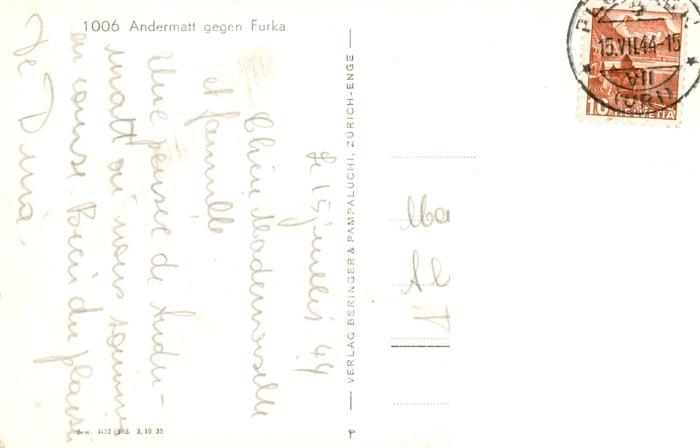 1006 Andermatt gegen Furka
Le 15 juillet 44
Chère Mademoiselle
et famille
Une pensée de Ander-
matt où nous sommes
en course. Bien du plaisir
VERLAG BERINGER & PAMPALUCHI, ZÜRICH-ENGE
15.VII.44-15
VII
(URI)
10 HELVETIA
Ma
Al
3.10.39